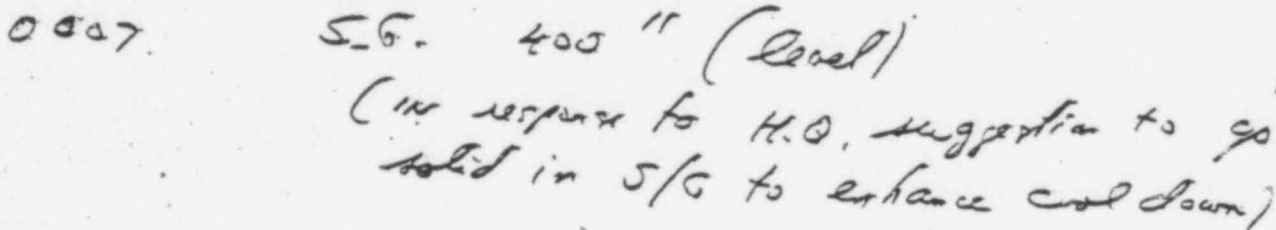 0007. S.G. 400" (level)
(in response to H.Q. suggestion to go
solid in S/G to enhance cool down)